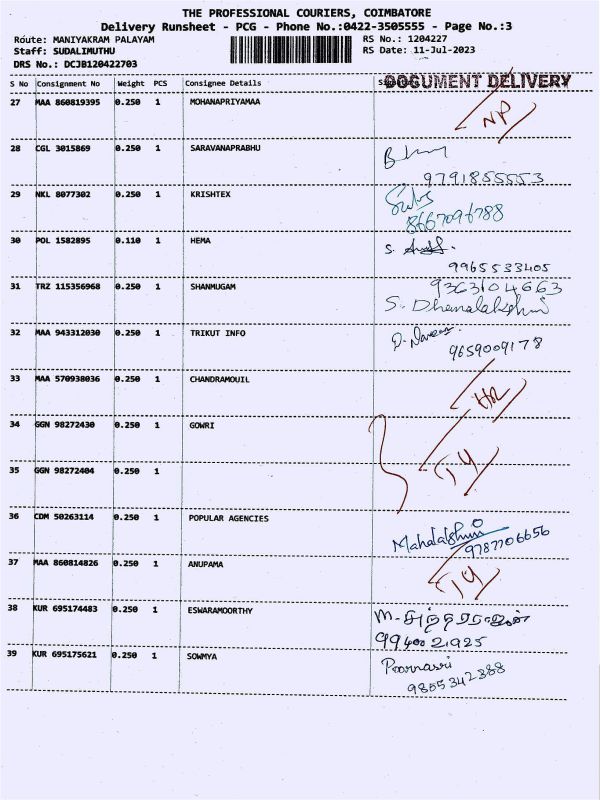 THE PROFESSIONAL COURIERS, COIMBATORE
Delivery Runsheet - PCG - Phone No.:0422-3505555 - Page No.:3
Route: MANIYAKRAM PALAYAM RS No.: 1204227
Staff: SUDALIMUTHU RS Date: 11-Jul-2023
DRS No.: DCJB120422703
DOCUMENT DELIVERY
S No Consignment No Weight PCS Consignee Details
27 MAA 860819395 0.250 1 MOHANAPRIYAMAA NP
28 CGL 3015869 0.250 1 SARAVANAPRABHU
9791855553
29 NKL 8077302 0.250 1 KRISHTEX
8667096788
30 POL 1582895 0.110 1 HEMA S.
9965533405
31 TRZ 115356968 0.250 1 SHANMUGAM 9363104663
S. Dhanalakshmi
32 MAA 943312030 0.250 1 TRIKUT INFO
9659009178
33 MAA 570938036 0.250 1 CHANDRAMOUIL
34 GGN 98272430 0.250 1 GOWRI
35 GGN 98272404 0.250 1
36 CDM 50263114 0.250 1 POPULAR AGENCIES
Mahalakshmi 9787706656
37 MAA 860814826 0.250 1 ANUPAMA
38 KUR 695174483 0.250 1 ESWARAMOORTHY
9940021925
39 KUR 695175621 0.250 1 SOWMYA Poornasri
9865342388